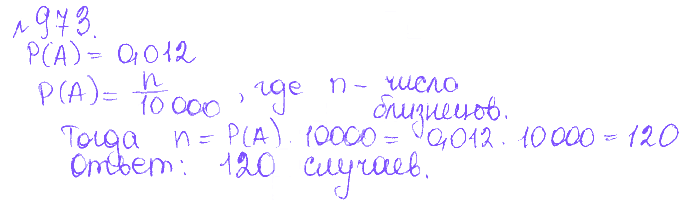 №973.
P(A) = 0,012
P(A) = n/10000, где n - число
близнецов.
Тогда n = P(A) · 10000 = 0,012 · 10000 = 120
Ответ: 120 случаев.